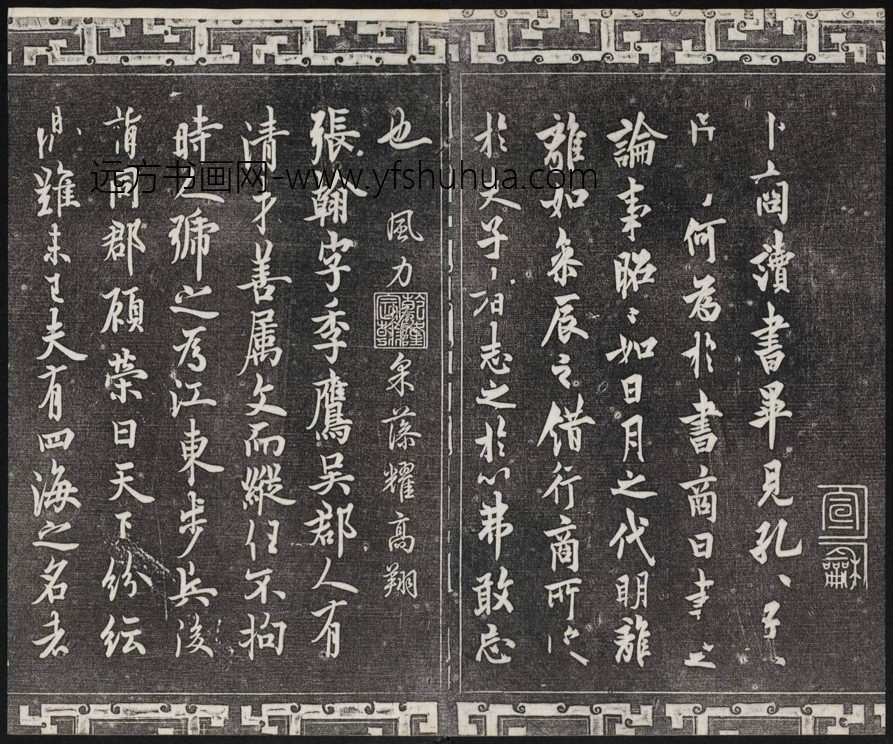 宣龢
卜商讀書畢見孔〻子
何為於書商曰書之
論事昭〻如日月之代明離
離如參辰之錯行商所
於夫子〻志之於心弗敢忘
也
風力
乾隆宸翰
采藻耀高翔
張翰字季鷹吳郡人有
清才善属文而縱任不拘
時人號之為江東步兵後
同郡顧榮曰天下紛紜
難未已夫有四海之名者
远方书画网-www.yfshuhua.com